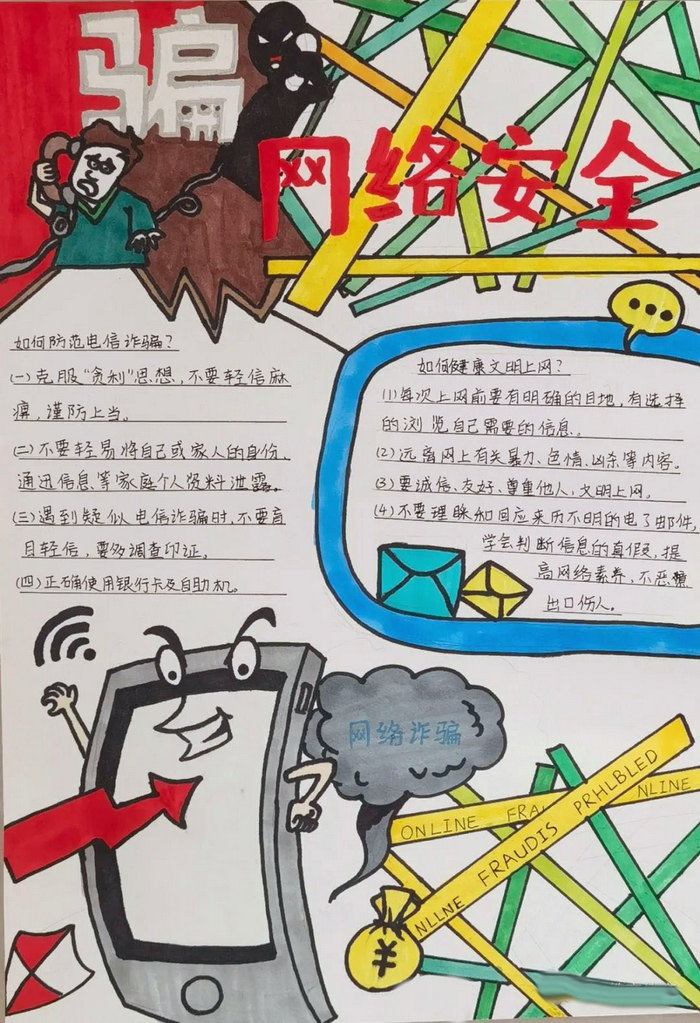 骗
网络安全
如何防范电信诈骗?
(一)克服“贪利”思想,不要轻信麻
痹,谨防上当。
(二)不要轻易将自己或家人的身份、
通迅信息等家庭个人资料泄露。
(三)遇到疑似电信诈骗时,不要盲
目轻信,要多调查印证。
(四)正确使用银行卡及自助机。
如何健康文明上网?
(1)每次上网前要有明确的目地,有选择
的浏览自己需要的信息。
(2)远离网上有关暴力、色情、凶杀等内容。
(3)要诚信、友好、尊重他人,文明上网。
(4)不要理睬和回应来历不明的电子邮件,
学会判断信息的真假,提
高网络素养,不恶
出口伤人。
网络诈骗
ONLINE FRAU
NLINE
NLLNE FRAUDIS PRHLBLED
¥